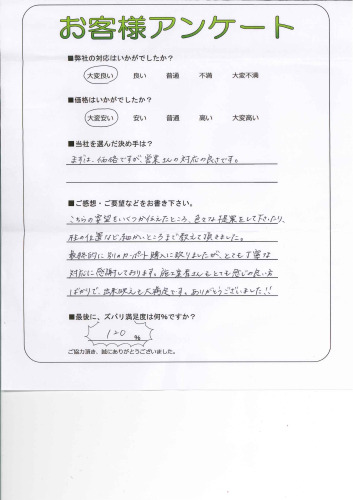 お客様アンケート
■弊社の対応はいかがでしたか?
大変良い 良い 普通 不満 大変不満
■価格はいかがでしたか?
大変安い 安い 普通 高い 大変高い
■当社を選んだ決め手は?
まずは、価格ですが、営業さんの対応の良さです。
■ご感想・ご要望などをお書き下さい。
こちらの要望をいくつか伝えたところ、色々な提案をして下さったり、
柱の位置など細かいところまで教えて頂きました。
最終的に別のカーポート購入に致りましたが、とても丁寧な
対応に感謝しております。施工業者さんもとても感じの良い方
ばかりで、出来映えも大満足です。ありがとうございました!!
■最後に、ズバリ満足度は何%ですか?
120%
ご協力頂き、誠にありがとうございました。